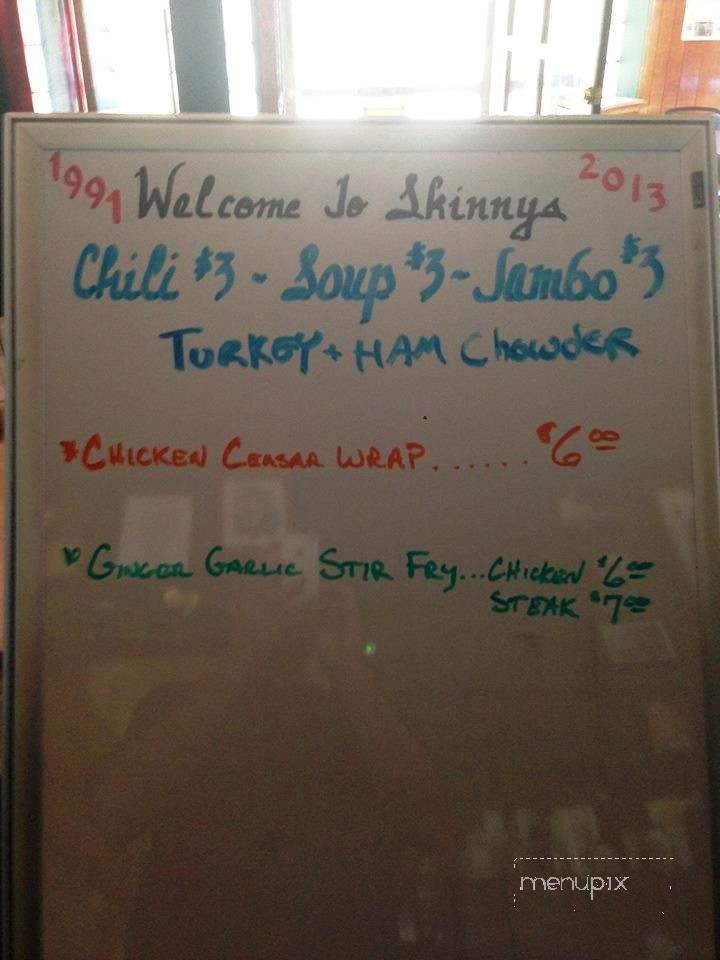 1991 Welcome To Skinnys 2013
Chili $3 - Soup $3 - Jambo $3
TURKEY + HAM ChowDER
* CHICKEN CEASAR WRAP...... $6.00
* GINGER GARLIC STIR FRY...CHICKEN $6.00
STEAK $7.00
menupix